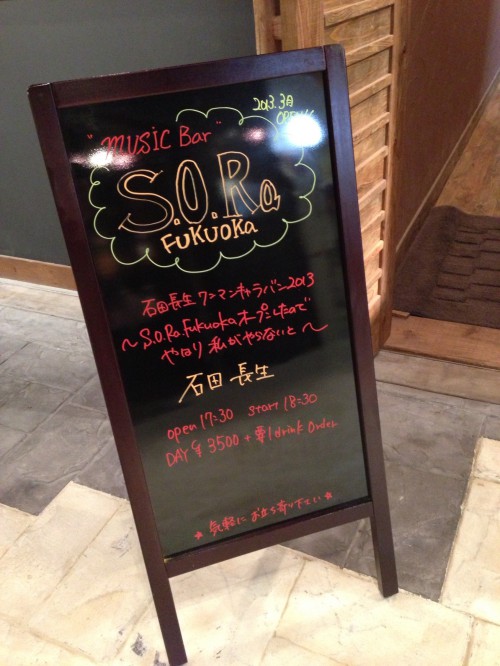 2013.3月
OPEN!!
"MUSIC Bar"
S.O.Ra
FUKUOKA
石田長生ワンマンキャラバン2013
〜S.O.Ra.Fukuokaオープンしたので
やはり私がやらないと〜
石田 長生
open 17:30 start 18:30
DAY ¥3500 + 要1drink Order
★気軽にお立ち寄り下さい★